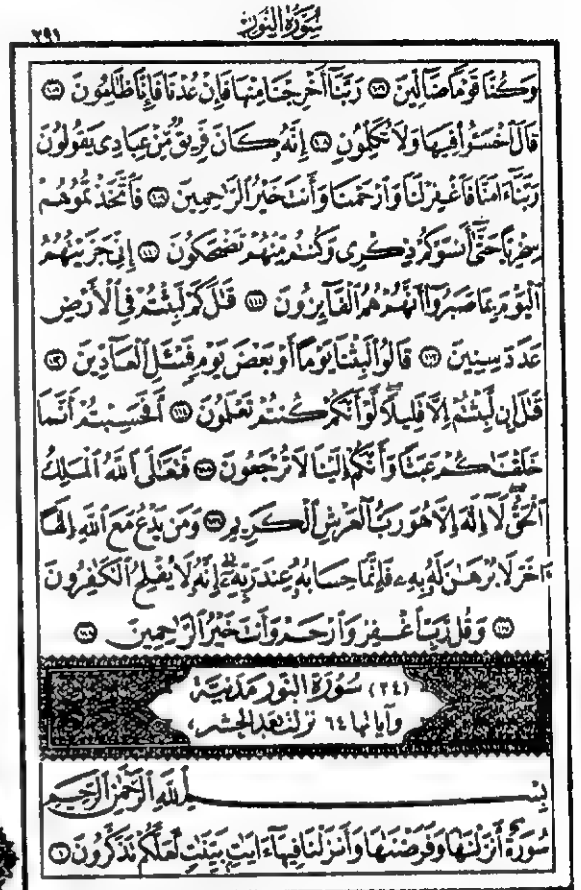 سُورَةُ النُّورِ
٢٩١
وَكُنَّا قَوْمًا ضَآلِّينَ ۝١٠٦ رَبَّنَآ أَخْرِجْنَا مِنْهَا فَإِنْ عُدْنَا فَإِنَّا ظَٰلِمُونَ ۝١٠٧
قَالَ ٱخْسَـُٔوا۟ فِيهَا وَلَا تُكَلِّمُونِ ۝١٠٨ إِنَّهُۥ كَانَ فَرِيقٌ مِّنْ عِبَادِى يَقُولُونَ
رَبَّنَآ ءَامَنَّا فَٱغْفِرْ لَنَا وَٱرْحَمْنَا وَأَنتَ خَيْرُ ٱلرَّٰحِمِينَ ۝١٠٩ فَٱتَّخَذْتُمُوهُمْ
سِخْرِيًّا حَتَّىٰٓ أَنسَوْكُمْ ذِكْرِى وَكُنتُم مِّنْهُمْ تَضْحَكُونَ ۝١١٠ إِنِّى جَزَيْتُهُمُ
ٱلْيَوْمَ بِمَا صَبَرُوٓا۟ أَنَّهُمْ هُمُ ٱلْفَآئِزُونَ ۝١١١ قَٰلَ كَمْ لَبِثْتُمْ فِى ٱلْأَرْضِ
عَدَدَ سِنِينَ ۝١١٢ قَالُوا۟ لَبِثْنَا يَوْمًا أَوْ بَعْضَ يَوْمٍ فَسْـَٔلِ ٱلْعَآدِّينَ ۝١١٣
قَٰلَ إِن لَّبِثْتُمْ إِلَّا قَلِيلًا لَّوْ أَنَّكُمْ كُنتُمْ تَعْلَمُونَ ۝١١٤ أَفَحَسِبْتُمْ أَنَّمَا
خَلَقْنَٰكُمْ عَبَثًا وَأَنَّكُمْ إِلَيْنَا لَا تُرْجَعُونَ ۝١١٥ فَتَعَٰلَى ٱللَّهُ ٱلْمَلِكُ
ٱلْحَقُّ لَآ إِلَٰهَ إِلَّا هُوَ رَبُّ ٱلْعَرْشِ ٱلْكَرِيمِ ۝١١٦ وَمَن يَدْعُ مَعَ ٱللَّهِ إِلَٰهًا
ءَاخَرَ لَا بُرْهَٰنَ لَهُۥ بِهِۦ فَإِنَّمَا حِسَابُهُۥ عِندَ رَبِّهِۦٓ إِنَّهُۥ لَا يُفْلِحُ ٱلْكَٰفِرُونَ
۝١١٧ وَقُل رَّبِّ ٱغْفِرْ وَٱرْحَمْ وَأَنتَ خَيْرُ ٱلرَّٰحِمِينَ ۝١١٨
(٢٤) سُورَةُ النُّورِ مَدَنِيَّةٌ
وَآيَاتُهَا ٦٤ نَزَلَتْ بَعْدَ الحَشْرِ،
بِسْمِ ٱللَّهِ ٱلرَّحْمَٰنِ ٱلرَّحِيمِ
سُورَةٌ أَنزَلْنَٰهَا وَفَرَضْنَٰهَا وَأَنزَلْنَا فِيهَآ ءَايَٰتٍۭ بَيِّنَٰتٍ لَّعَلَّكُمْ تَذَكَّرُونَ ۝١